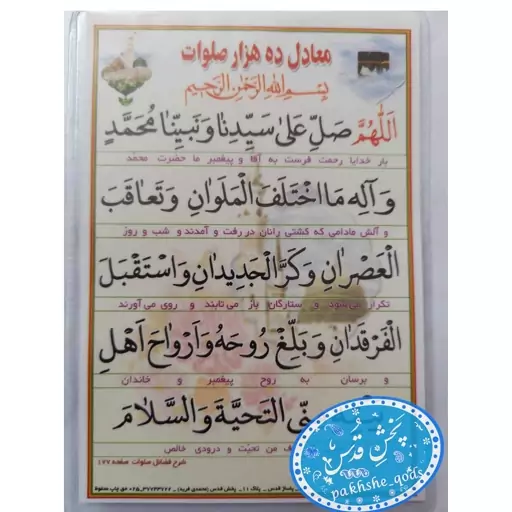 معادل ده هزار صلوات
بِسْمِ اللهِ الرَّحْمٰنِ الرَّحيمِ
اَللّٰهُمَّ صَلِّ عَلىٰ سَيِّدِنٰا وَ نَبِيِّنٰا مُحَمَّدٍ
بار خدایا رحمت فرست به آقا و پیغمبر ما حضرت محمّد
وَ آلِهِ مَا اخْتَلَفَ الْمَلَوٰانِ وَ تَعٰاقَبَ
و آلش مادامی که کشتی رانان در رفت و آمدند و شب و روز
الْعَصْرٰانِ وَ كَرَّ الْجَديدٰانِ وَ اسْتَقْبَلَ
تکرار می‌شود و ستارگان باز می تابند و روی می آورند
الْفَرْقَدٰانِ وَ بَلِّغْ رُوحَهُ وَ اَرْوٰاحَ اَهْلِ
و برسان به روح پیغمبر و خاندان
مِنِّى التَّحِيَّةَ وَ السَّلٰامَ
من تحیّت و درودی خالص
شرح فضائل صلوات صفحه ۱۲۷
پخش قدس (محمدی فرید) ـ ۰۲۵ـ۳۷۷۴۳۷۲۲ حق چاپ محفوظ
پخش قدس
pakhshe_qods